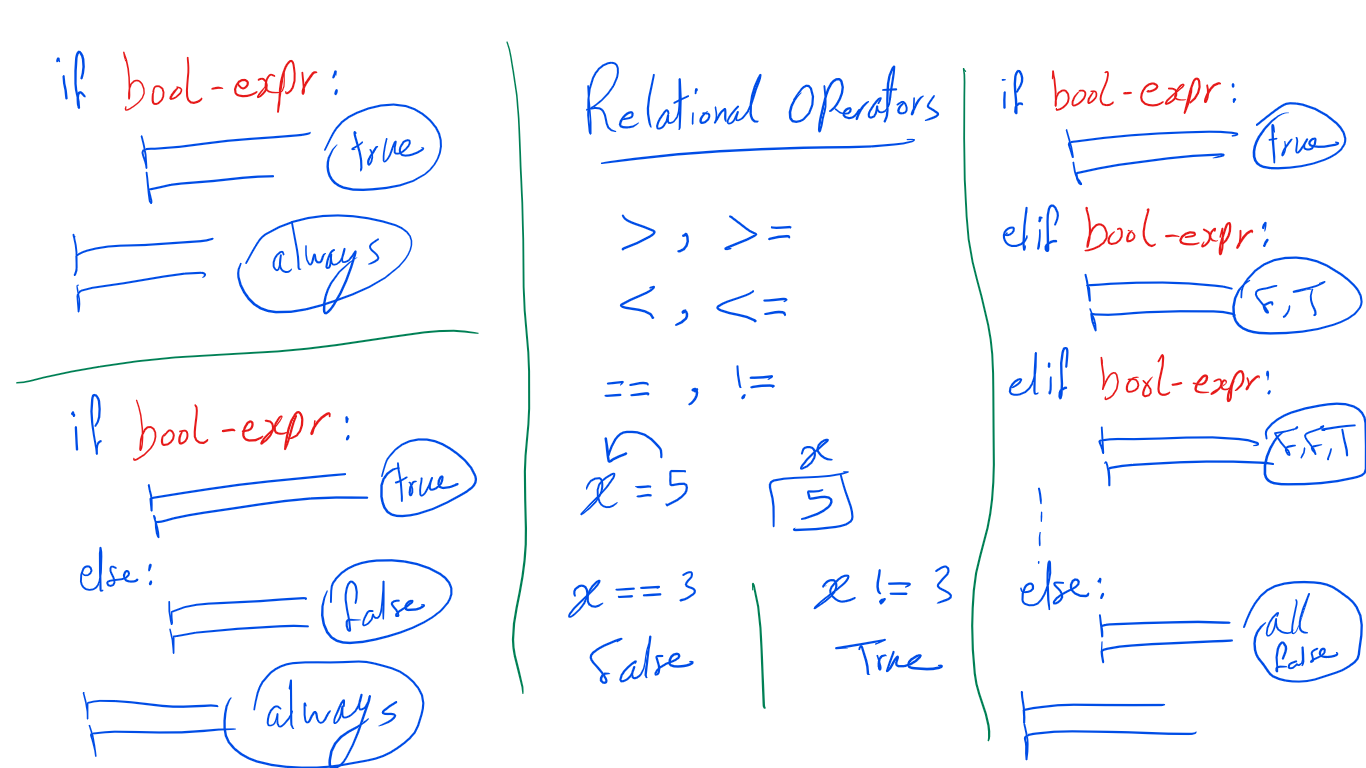 if bool-expr:
true
always
if bool-expr:
true
else:
false
always
Relational Operators
> , >=
< , <=
== , !=
x = 5
x
5
x == 3
False
x != 3
True
if bool-expr:
true
elif bool-expr:
F, T
elif bool-expr:
F, F, T
else:
all
false